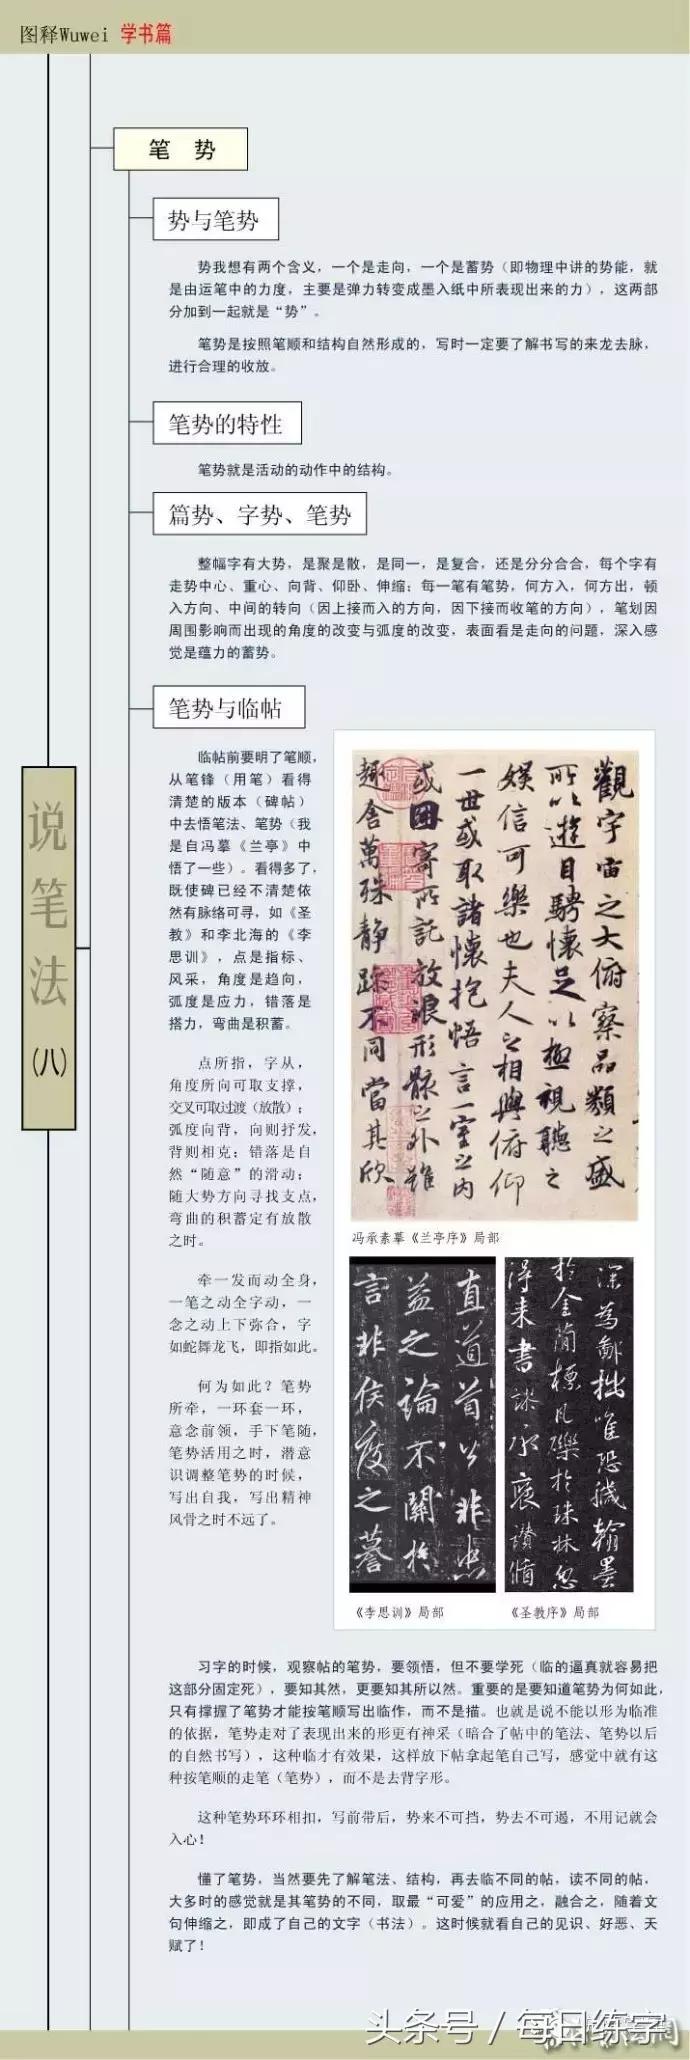 图释Wuwei 学书篇
笔 势
势与笔势
势我想有两个含义，一个是走向，一个是蓄势（即物理中讲的势能，就
是由运笔中的力度，主要是弹力转变成墨入纸中所表现出来的力），这两部
分加到一起就是“势”。
笔势是按照笔顺和结构自然形成的，写时一定要了解书写的来龙去脉，
进行合理的收放。
笔势的特性
笔势就是活动的动作中的结构。
篇势、字势、笔势
整幅字有大势，是聚是散，是同一，是复合，还是分分合合，每个字有
走势中心、重心、向背、仰卧、伸缩；每一笔有笔势，何方入，何方出，顿
入方向、中间的转向（因上接而入的方向，因下接而收笔的方向），笔划因
周围影响而出现的角度的改变与弧度的改变，表面看是走向的问题，深入感
觉是蕴力的蓄势。
笔势与临帖
临帖前要明了笔顺，
从笔锋（用笔）看得
清楚的版本（碑帖）
中去悟笔法、笔势（我
是自冯摹《兰亭》中
悟了一些）。看得多了，
既使碑已经不清楚依
然有脉络可寻，如《圣
教》和李北海的《李
思训》，点是指标、
风采，角度是趋向，
弧度是应力，错落是
搭力，弯曲是积蓄。
点所指，字从，
角度所向可取支撑，
交叉可取过渡（放散）；
弧度向背，向则抒发，
背则相克；错落是自
然“随意”的滑动；
随大势方向寻找支点，
弯曲的积蓄定有放散
之时。
牵一发而动全身，
一笔之动全字动，一
念之动上下弥合，字
如蛇舞龙飞，即指如此。
何为如此？笔势
所牵，一环套一环，
意念前领，手下笔随，
笔势活用之时，潜意
识调整笔势的时候，
写出自我，写出精神
风骨之时不远了。
觀宇宙之大俯察品類之盛
所以遊目騁懷足以極視聽之
娛信可樂也夫人之相與俯仰
一世或取諸懷抱悟言一室之内
或因寄所託放浪形骸之外雖
趣舍萬殊静躁不同當其欣
冯承素摹《兰亭序》局部
直道首公非忠
益之論不關於
言非侯度之謩
深為鄙拙唯恐穢翰墨
於金簡標凡礫於珠林忽
得来書謬承褒讚循
《李思训》局部
《圣教序》局部
习字的时候，观察帖的笔势，要领悟，但不要学死（临的逼真就容易把
这部分固定死），要知其然，更要知其所以然。重要的是要知道笔势为何如此，
只有撑握了笔势才能按笔顺写出临作，而不是描。也就是说不能以形为临准
的依据，笔势走对了表现出来的形更有神采（暗合了帖中的笔法、笔势以后
的自然书写），这种临才有效果，这样放下帖拿起笔自己写，感觉中就有这
种按笔顺的走笔（笔势），而不是去背字形。
这种笔势环环相扣，写前带后，势来不可挡，势去不可遏，不用记就会
入心！
懂了笔势，当然要先了解笔法、结构，再去临不同的帖，读不同的帖，
大多时的感觉就是其笔势的不同，取最“可爱”的应用之，融合之，随着文
句伸缩之，即成了自己的文字（书法）。这时候就看自己的见识、好恶、天
赋了！
说笔法(八)
头条号／每日练字